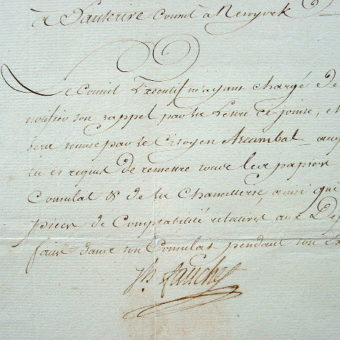 à Hauterive Consul à Newyork
Le Conseil Executif m'ayant chargé de
notifier son rappel par la Lettre ci jointe, et
sera remise par le Citoyen Arcambal auq
tu es requis de remettre tous les papiers
Consulat & de la Chancellerie, ainsi que
pieces de Comptabilité relatives aux Dep
faites dans son Consulat pendant son
Jh Fauchet